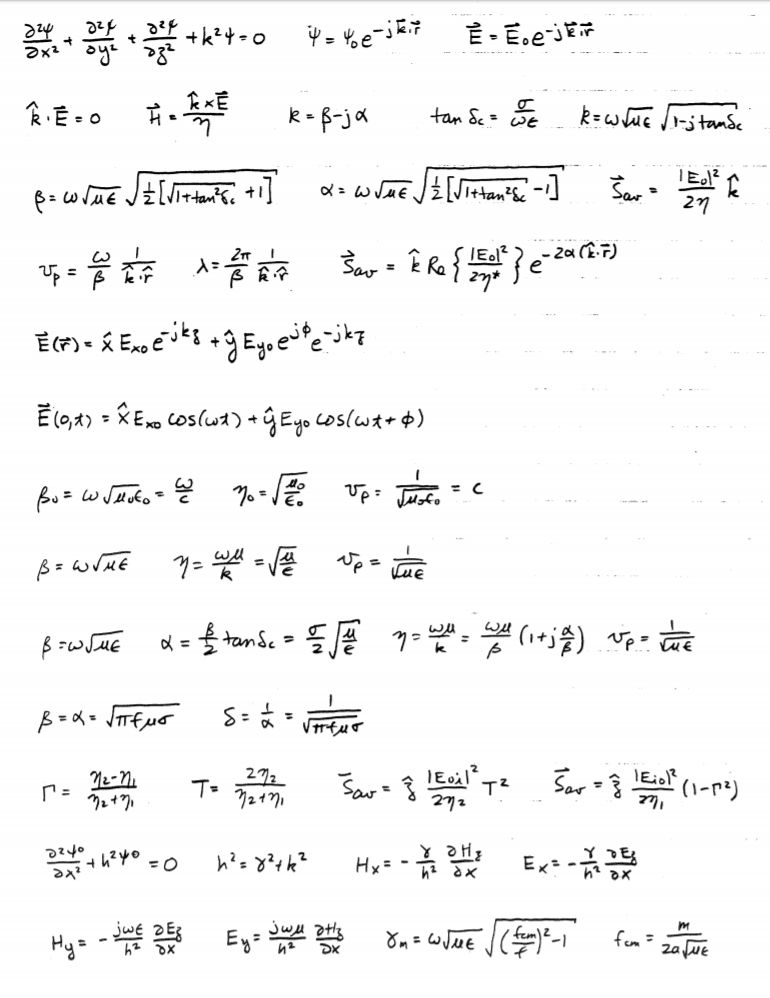 ∂²ψ/∂x² + ∂²ψ/∂y² + ∂²ψ/∂z² + k²ψ = 0    ψ = ψ₀e^(-jk⃗·r⃗)    E⃗ = E⃗₀e^(-jk⃗·r⃗)
k̂·E⃗ = 0    H⃗ = (k̂×E⃗)/η    k = β-jα    tan δc = σ/(ωϵ)    k = ω√(μϵ) √(1-j tan δc)
β = ω√(μϵ) √(½[√(1+tan²δc) +1])    α = ω√(μϵ) √(½[√(1+tan²δc) -1])    S⃗av = |E₀|²/(2η) k̂
vp = (ω/β) 1/(k̂·r̂)    λ = (2π/β) 1/(k̂·r̂)    S⃗av = k̂ Re{|E₀|²/(2η*)} e^(-2α(k̂·r⃗))
E⃗(r⃗) = x̂ Ex₀ e^(-jkz) + ŷ Ey₀ e^(jϕ) e^(-jkz)
E⃗(0,t) = x̂ Ex₀ cos(ωt) + ŷ Ey₀ cos(ωt + ϕ)
β₀ = ω√(μ₀ϵ₀) = ω/c    η₀ = √(μ₀/ϵ₀)    vp = 1/√(μ₀ϵ₀) = c
β = ω√(μϵ)    η = ωμ/k = √(μ/ϵ)    vp = 1/√(μϵ)
β = ω√(μϵ)    α = (β/2) tan δc = (σ/2)√(μ/ϵ)    η = ωμ/k = (ωμ/β)(1+j α/β)    vp = 1/√(μϵ)
β = α = √(πfμσ)    δ = 1/α = 1/√(πfμσ)
Γ = (η₂-η₁)/(η₂+η₁)    T = 2η₂/(η₂+η₁)    S⃗av = ẑ |E₀i|²/(2η₂) T²    S⃗av = ẑ |Ei₀|²/(2η₁) (1-Γ²)
∂²ψ⁰/∂x² + h²ψ⁰ = 0    h² = γ²+k²    Hx = -(γ/h²) ∂Hz/∂x    Ex = -(γ/h²) ∂Ez/∂x
Hy = -(jωϵ/h²) ∂Ez/∂x    Ey = (jωμ/h²) ∂Hz/∂x    γm = ω√(μϵ) √((fcm/f)²-1)    fcm = m/(2a√(μϵ))